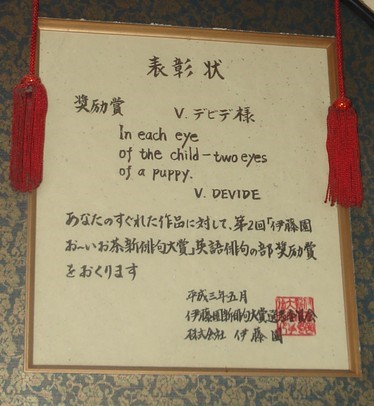 表彰状
奨励賞
V. デビデ様
In each eye
of the child – two eyes
of a puppy.
V. DEVIDE
あなたのすぐれた作品に対して、第2回「伊藤園
お〜いお茶新俳句大賞」英語俳句の部奨励賞
をおくります
平成三年五月
伊藤園新俳句大賞選考委員会
株式会社 伊藤園